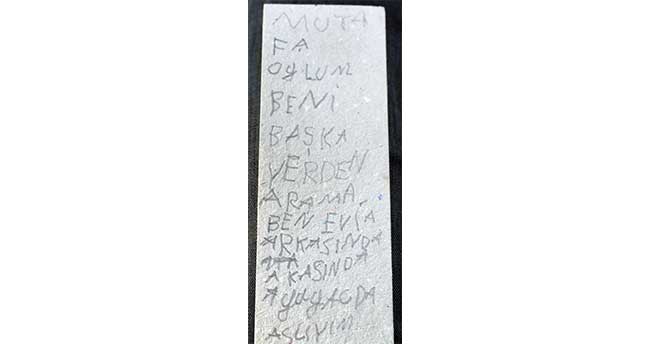 MUTA
FA
OyLUM
BENİ
BAŞKA
YERDEN
ARAMA.
BEN EVİA
ARKASINDA
AKASINDA
AyUyACDA
ASLIYIM